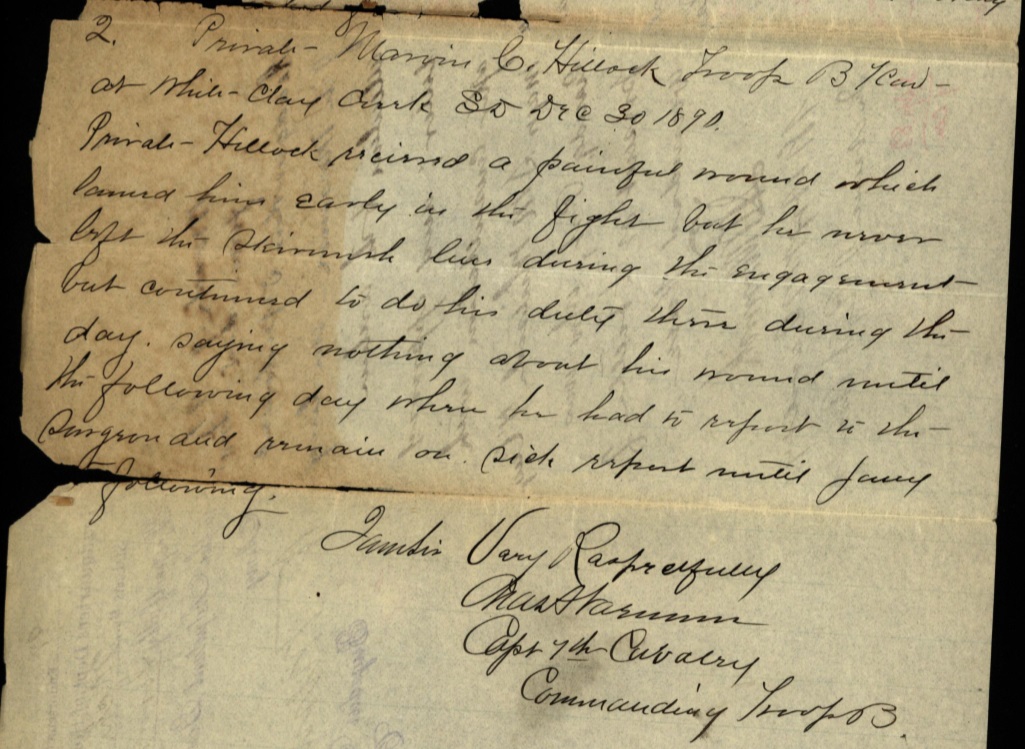 2. Private Marvin C. Hillock Troop B 7 Cav
at White Clay Creek SD Dec 30 1890.
Private Hillock received a painful wound which
lamed him early in the fight but he never
left the skirmish line during the engagement
but continued to do his duty there during the
day. saying nothing about his wound until
the following day when he had to report to the
surgeon and remain on sick report until Jany
following.
I am Sir Very Respectfully
Chas A Varnum
Capt 7th Cavalry
Commanding Troop B.